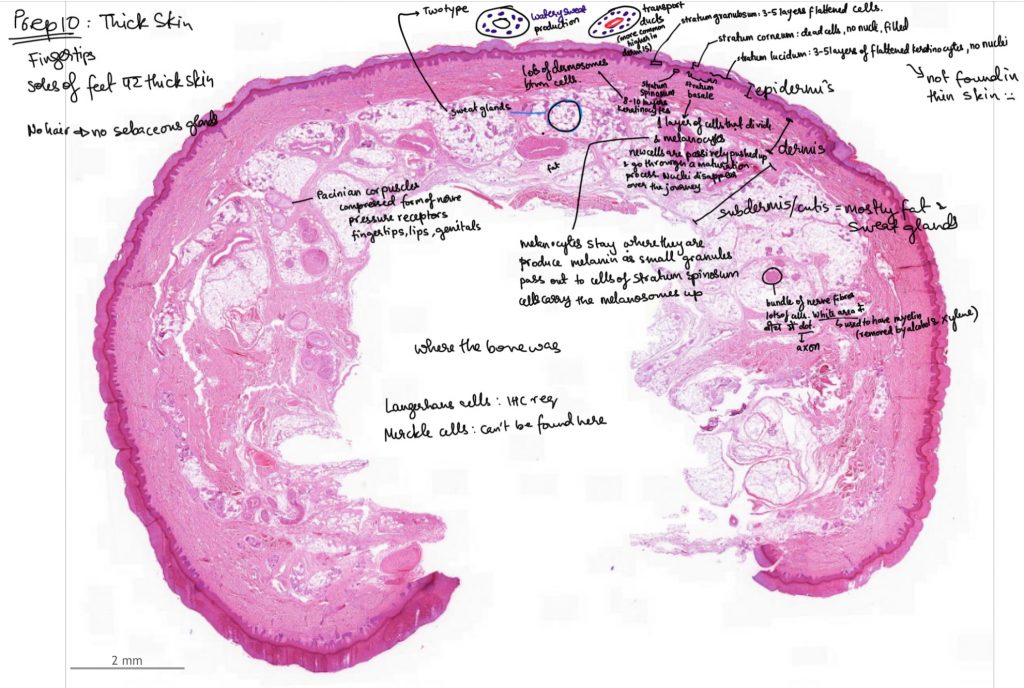 Prep 10: Thick Skin
Fingertips
soles of feet thick skin
No hair → no sebaceous glands
Two type
watery sweat
production
transport
ducts
(more common
higher in
dermis)
stratum granulosum: 3-5 layers flattened cells.
stratum corneum: dead cells, no nuclei, filled
stratum lucidum: 3-5 layers of flattened keratinocytes, no nuclei
↳ not found in
thin skin
lots of desmosomes
btwn cells.
stratum
spinosum
8-10 layers
keratinocytes
stratum
basale
epidermis
sweat glands
1 layer of cells that divide
& melanocytes
new cells are passively pushed up
& go through a maturation
process. Nuclei disappear
over the journey
dermis
fat
Pacinian corpuscles
compressed form of nerve
pressure receptors
fingertips, lips, genitals
subdermis/cutis = mostly fat &
sweat glands
melanocytes stay where they are
produce melanin as small granules
pass out to cells of stratum spinosum
cells carry the melanosomes up
bundle of nerve fibres
lots of cells. White area
dot
↳ used to have myelin
(removed by alcohol & xylene)
axon
where the bone was
Langerhans cells: IHC req
Merckle cells: can't be found here
2 mm